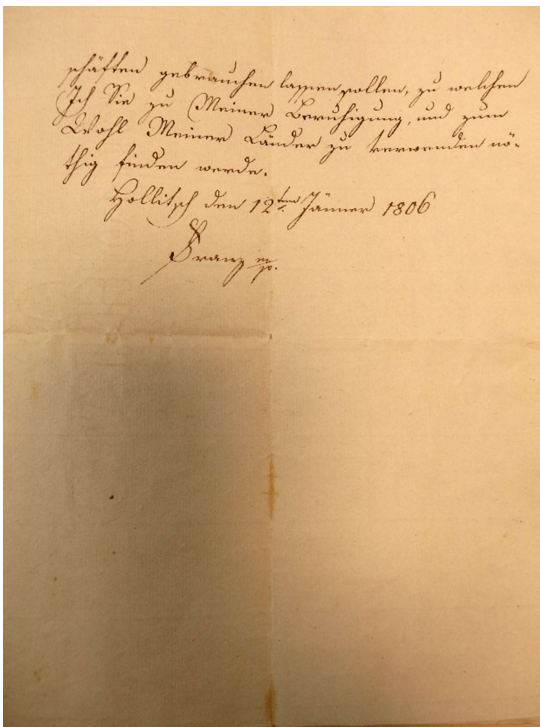 schäften gebrauchen lassen wollen, zu welchen
Ich Sie zu Meiner Beruhigung, und zum
Wohl Meiner Länder zu verwenden nö-
thig finden werde.
Hollitsch den 12ten Jänner 1806
Franz mp.